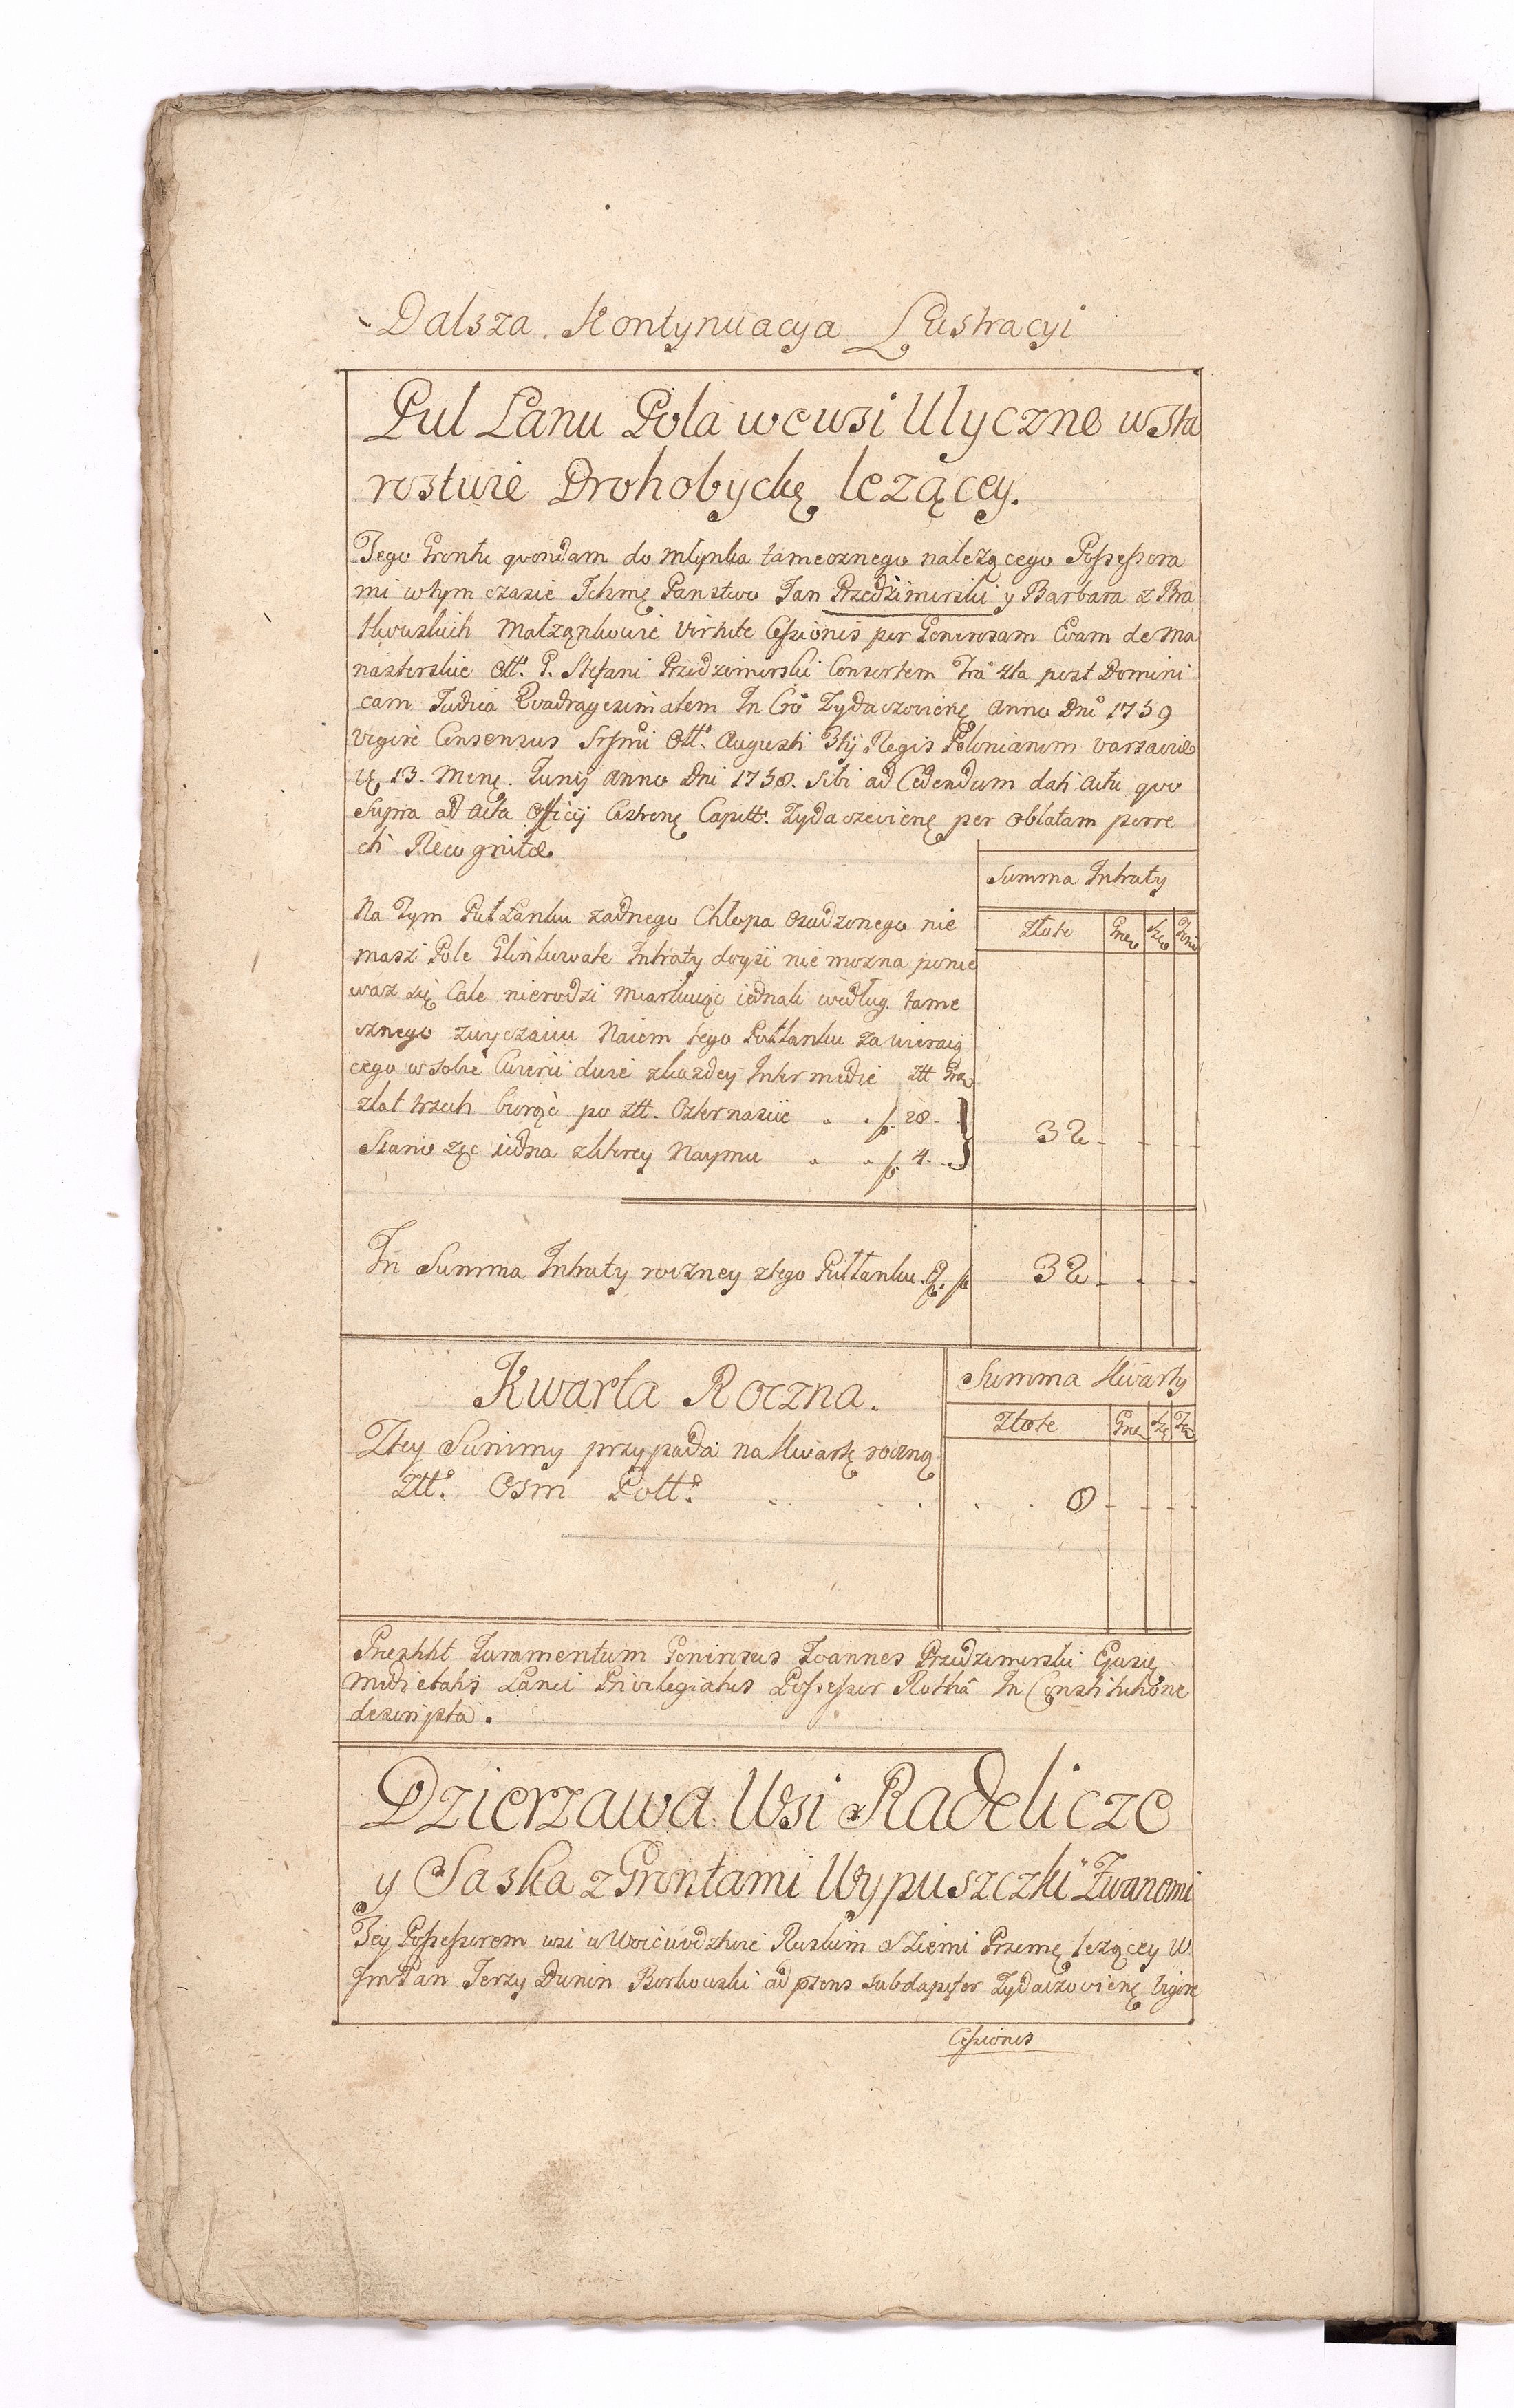 Dalsza. Kontynuacya Lustracyi
Puł Łanu Pola we wsi Ulyczne w Sta
rostwie Drohobyckę leżącey.
Tego Gruntu qvondam do Młynka tamecznego należącego Possessora
mi w tym czasie Ichmę Panstwo Jan Przedzimirski y Barbara z Bra
tkowskich Małżąnkowie virtute Cessionis per Generosam Evam de Ma
nasterskie Olł. G. Stefani Przedzimirski Consortem fra 4ta post Domini
cam Judica Qvadragesimalem In Cro Żydaczowienę Anno Dni 1759
vigore Consensus Srssmi Olł. Augusti 3tij Regis Poloniarum varsavie
13. Menę. Junij Anno Dni 1758. sibi ad Cedendum dati actu quo
Supra ad Acta Officij Castrenę Capitt. Żydaczevienę per Oblatam porre
cti Recognitæ
Summa Intraty
Złote Gro Sze
Na Tym Puł Łanku żadnego Chłopa Osadzonego nie
masz Pole Glinkowate Intraty doysc nie można ponie
waż się Cale nierodzi miarkuiąc iednak według tame
cznego zwyczaiu Naiem tego Połłanku zawieraią
cego w sobie Cwierci dwie z każdey Intermedie Złł Gro
zlat trzech biorąc po złł. Czternascie . . f. 28.
32 - - - -
Siano żęc iedna z ktorey Naymu . . f. 4.
In Summa Intraty roczney z tego Pułłanku. f. 32 - - - -
Kwarta Roczna.
Summa Kwarty
Złote Gro
Ztey Summy przypada na Kwartę roczną
Złł. Osm Poll. . . . . . 8 - - - -
Prestitit Juramentum Generosus Joannes Przedzimirski Ejusdę
Medietatis Lanei Privilegiatus Possessor Rothâ In Constitutione
descripta.
Dzierzawa Wsi Radelicze
y Saska z Gruntami Wypuszczki Zwanemi
Tey Possessorem wsi w Woiewodztwie Ruskim a Ziemi Przemę leżącey W
Jm Pan Jerzy Dunin Borkowski ad psens Subdapifer Żydaczovienę vigore
Cessionis